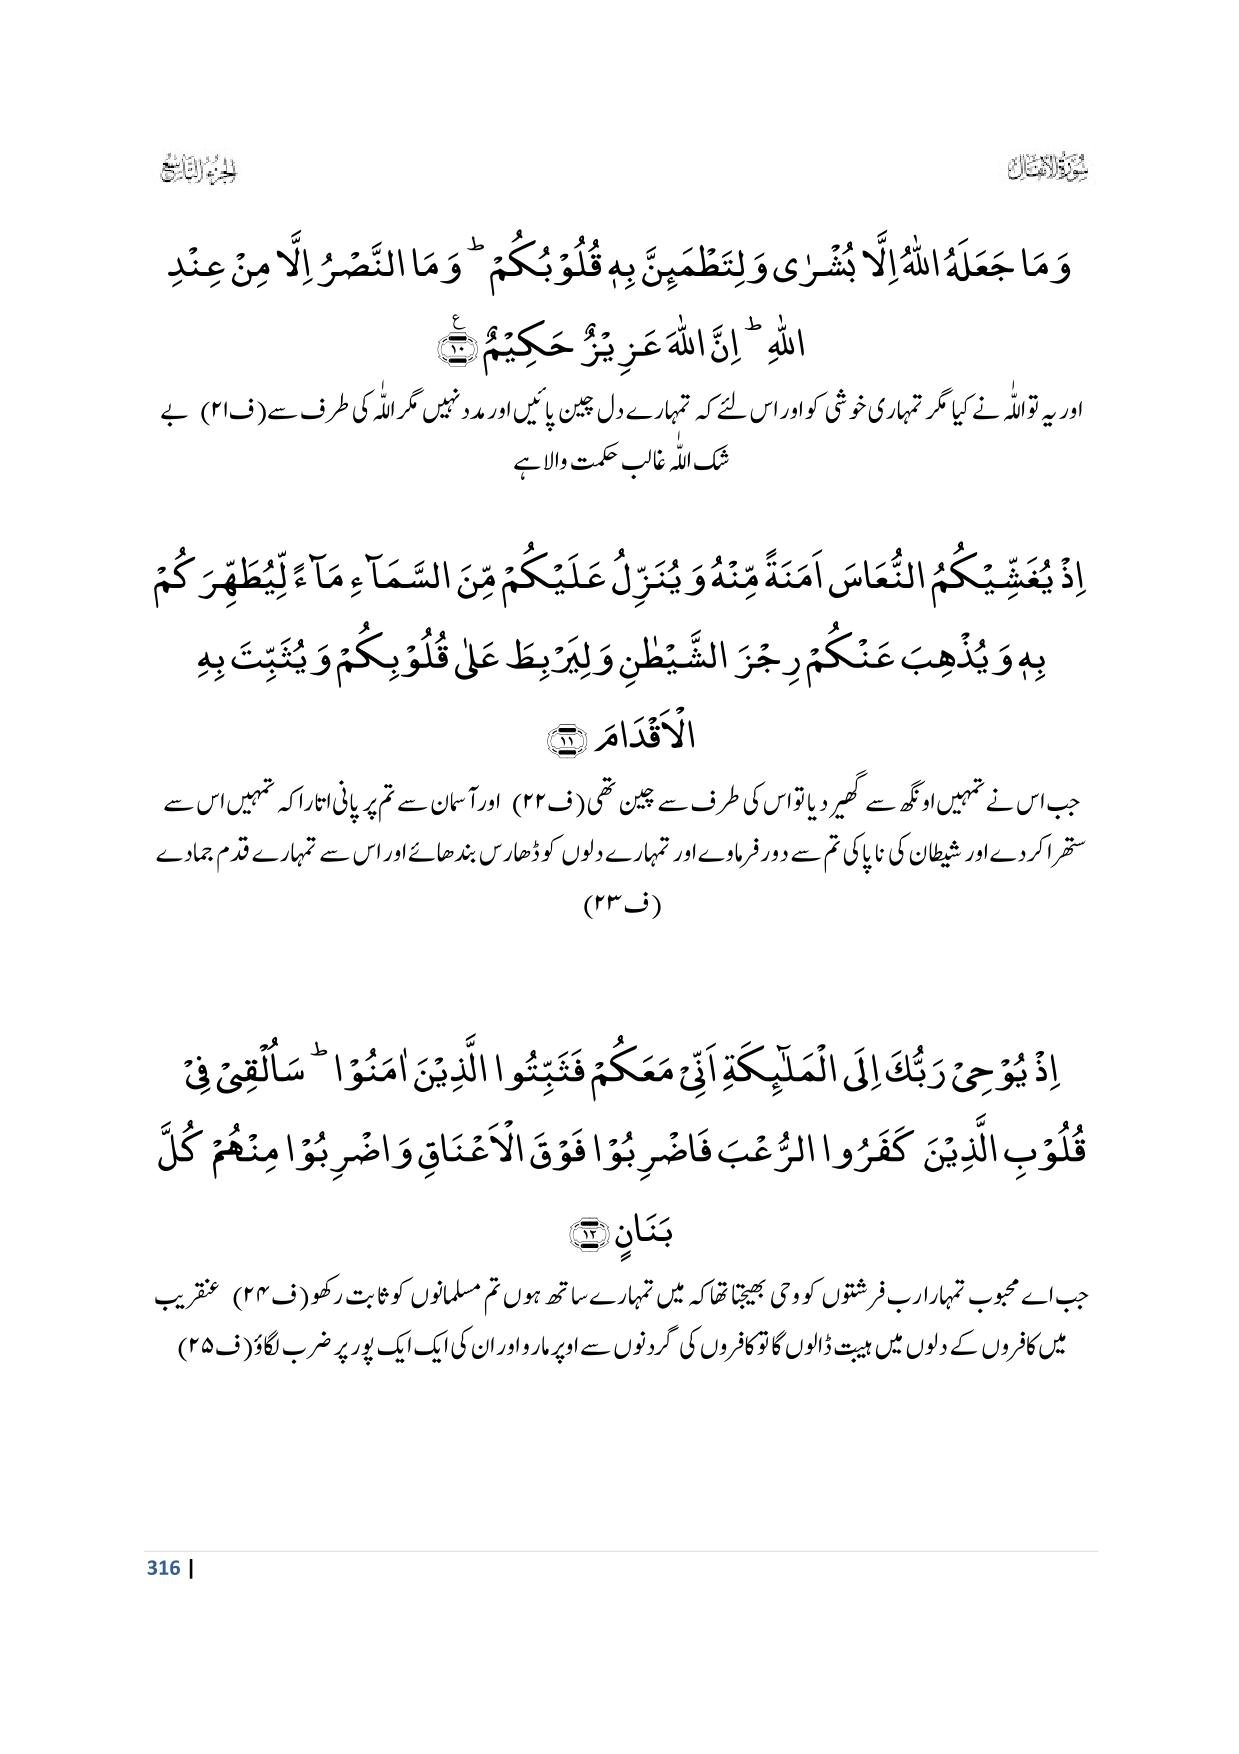 سُوْرَةُ الْاَنْفَال
الجزء التاسع
وَ مَا جَعَلَهُ اللّٰهُ اِلَّا بُشْرٰى وَ لِتَطْمَىِٕنَّ بِهٖ قُلُوْبُكُمْ ؕ وَ مَا النَّصْرُ اِلَّا مِنْ عِنْدِ
اللّٰهِ ؕ اِنَّ اللّٰهَ عَزِیْزٌ حَكِیْمٌ۠ ۝۱۰
اور یہ تو اللّٰہ نے کیا مگر تمہاری خوشی کو اور اس لئے کہ تمہارے دل چین پائیں اور مدد نہیں مگر اللّٰہ کی طرف سے (ف۲۱) بے
شک اللّٰہ غالب حکمت والا ہے
اِذْ یُغَشِّیْكُمُ النُّعَاسَ اَمَنَةً مِّنْهُ وَ یُنَزِّلُ عَلَیْكُمْ مِّنَ السَّمَآءِ مَآءً لِّیُطَهِّرَ كُمْ
بِهٖ وَ یُذْهِبَ عَنْكُمْ رِجْزَ الشَّیْطٰنِ وَ لِیَرْبِطَ عَلٰى قُلُوْبِكُمْ وَ یُثَبِّتَ بِهِ
الْاَقْدَامَ ۝۱۱
جب اس نے تمہیں اونگھ سے گھیر دیا تو اس کی طرف سے چین تھی (ف۲۲) اور آسمان سے تم پر پانی اتارا کہ تمہیں اس سے
ستھرا کردے اور شیطان کی ناپاکی تم سے دور فرماوے اور تمہارے دلوں کو ڈھارس بندھائے اور اس سے تمہارے قدم جمادے
(ف۲۳)
اِذْ یُوْحِیْ رَبُّكَ اِلَى الْمَلٰٓىِٕكَةِ اَنِّیْ مَعَكُمْ فَثَبِّتُوا الَّذِیْنَ اٰمَنُوْا ؕ سَاُلْقِیْ فِیْ
قُلُوْبِ الَّذِیْنَ كَفَرُوا الرُّعْبَ فَاضْرِبُوْا فَوْقَ الْاَعْنَاقِ وَ اضْرِبُوْا مِنْهُمْ كُلَّ
بَنَانٍ ۝۱۲
جب اے محبوب تمہارا رب فرشتوں کو وحی بھیجتا تھا کہ میں تمہارے ساتھ ہوں تم مسلمانوں کو ثابت رکھو (ف۲۴) عنقریب
میں کافروں کے دلوں میں ہیبت ڈالوں گا تو کافروں کی گردنوں سے اوپر مارو اور ان کی ایک ایک پور پر ضرب لگاؤ (ف۲۵)
316 |